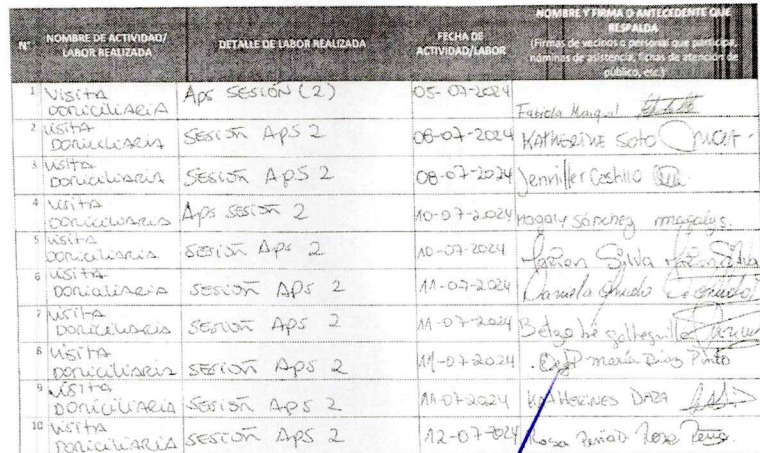 N° NOMBRE DE ACTIVIDAD/ LABOR REALIZADA DETALLE DE LABOR REALIZADA FECHA DE ACTIVIDAD/LABOR NOMBRE Y FIRMA O ANTECEDENTE QUE RESPALDA
(Firmas de vecinos o personal que participa, nóminas de asistencia, fichas de atención de público, etc.)
1 Visita Domiciliaria Aps SESIÓN (2) 05-07-2024
2 Visita Domiciliaria SESIÓN APS 2 08-07-2024 KATHERINE Soto
3 Visita Domiciliaria SESIÓN APS 2 08-07-2024 Jenniller Castillo
4 Visita Domiciliaria Aps SESIÓN 2 10-07-2024 Magaly Sánchez magalys.
5 Visita Domiciliaria SESIÓN Aps 2 10-07-2024 Silva
6 Visita Domiciliaria SESIÓN APS 2 11-07-2024 Daniela
7 Visita Domiciliaria SESIÓN APS 2 11-07-2024
8 Visita Domiciliaria SESIÓN APS 2 11-07-2024 María Díaz Pinto
9 Visita Domiciliaria SESIÓN APS 2 11-07-2024 KATHERINES DAZA
10 Visita Domiciliaria SESIÓN APS 2 12-07-2024 Rosa